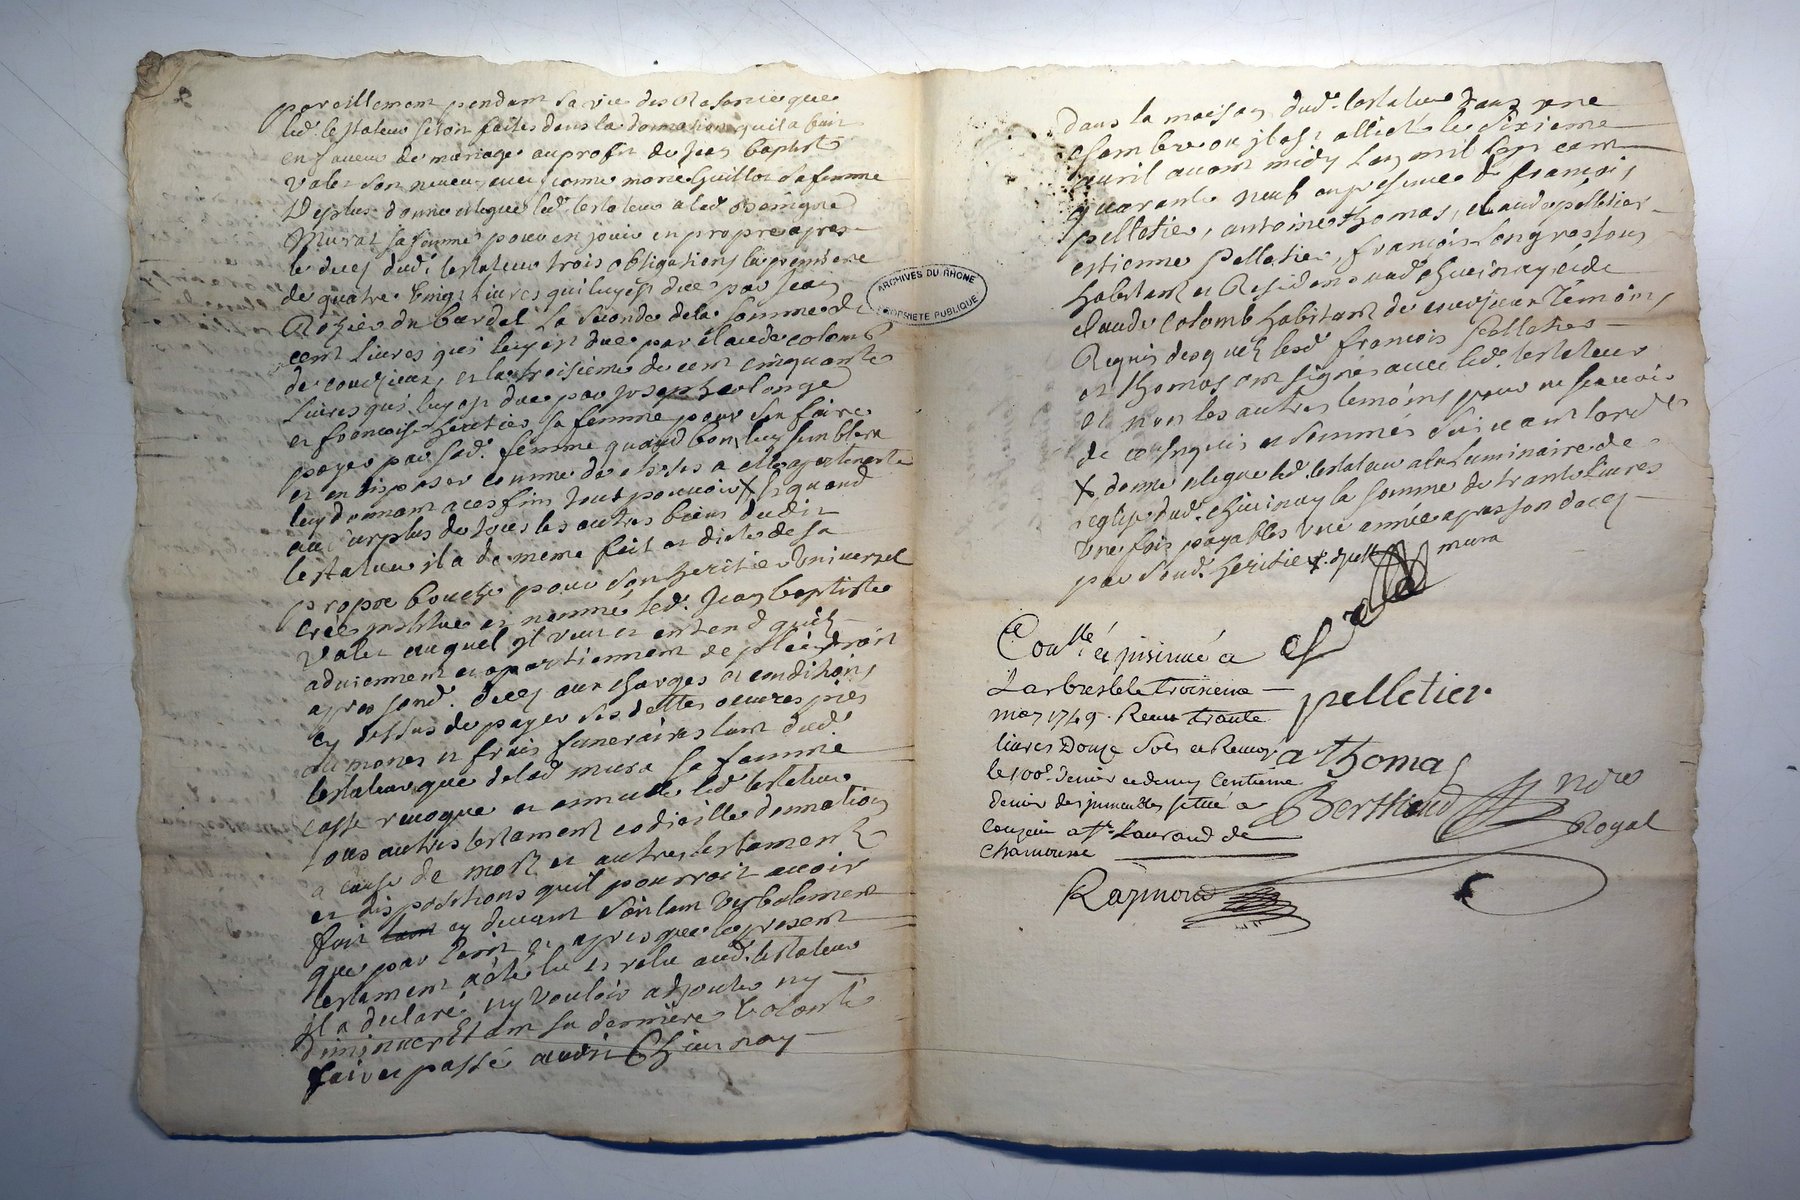 pareillement pendant sa vie des Reserves que
led. testateur seroit faites dans la donnation quil a fait
en faveur de mariage au profit de Jean baptiste
Valet son neveu avec pierrre marie Guillot sa femme
De plus donne et legue led. testateur a lad. Benigne
Murat sa femme pour en jouir en propre apres
le deces dud. testateur trois obligations la premiere
de quatre Vingt livres qui luy est due par Jean
Rozier du bardel la seconde de la somme de
cent livres qui luy est due par Claude Colomb
de courzieux, et la troisieme de cent cinquante
livres qui luy est due par joseph
et francoise sa femme pour s'en faire
payer par sad. femme quand bon luy semblera
et en disposer comme de choses a elle apartenante
luy donnant a ces fins tout pouvoir X Et quand
au surplus de tous les autres biens dudit
testateur il a de meme fait et dicté de sa
propre bouche pour son heritier Universel
créé institué et nommé led. Jean baptiste
Valet auquel il veut et entend qu'ils
adviennent et apartiennent de plein droit
apres sond. deces aux charges et conditions
cy dessus de payer ses dettes oeuvres pies
aumones et frais funeraires tant dud.
testateur que de lad. mura sa femme
casse revoque et annulle led. testateur
tous autres testament codicille donnation
a cause de mort et autres testament
et dispositions quil pourroit avoir
fait cy devant soit tant verbalement
que par ecrit et apres que le present
testament a été lu et relu aud. testateur
il a declaré ny vouloir adjouter ny
diminuer Etant sa derniere volonté
fait et passé audit Chevinay
dans la maison dud. testateur dans une
chambre ou il est allicté le sixieme
avril avant midy L'an mil sept cent
quarante neuf en presence de françois
pelletier, antoine thomas, claude pelletier
estienne pelletier, françois Longre tous
habitant et Residents aud. Chevinay et de
claude colomb habitant de courzieux Témoins
Requis desquels lesd. francois pelletier
et thomas ont signés avec led. testateur
et non les autres temoins pour ne scavoir
de ce enquis et sommés suivant lord.ce
X donne et legue led. testateur a la Luminaire de
l'eglise dud. Chevinay la somme de trante livres
Une fois payables une année apres son deces
par sond. heritier
mura
Con.llé et insinué a
Larbresle le troisieme
may 1749. Recu trante
livres Douze sols et Renvoy
le 100e. denier et demy Centieme
denier des immeubles situé a
Couzieu a Mr. Laurand de
Chamousse
pelletier
a thomas
Berthaud nore
Royal
Raymond
ARCHIVES DU RHONE
PROPRIETE PUBLIQUE